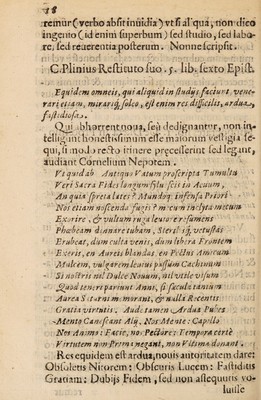 18
remur (verbo absit inuidia) vt si al'qua, non dico
ingenio (id enim superbum) sed studio, sed labo-
re, sed reuerentia posterum. Nonne scripsit.
C. Plinius Restituto suo. 5. lib. sexto Epist.
Equidem omneis, qui aliquid in studijs faciunt, vene-
rari etiam, mirariq, soleo, est enim res difficilis, ardua,
fastidiosa.
Qui abhorrent noua, seu dedignantur, non in-
telligunt honestissimum esse maiorum vestigia se-
qui, si modo recto itinere præcesserint sed legunt,
audiant Cornelium Nepotem.
Vt quidab Antiquo Vatum proscripta Tumultu
Veri Sacra Fides longum silu seis in Aeuum,
An quia spreta lates? Mundoq; infensa Priori
Nos etiam noscenda fugis? m ecum inclyta mecum
Exorire, & vultum ruga leuiore resumens
Phœbeam dignare tubam, Sterilisq; vetustas
Erubeat, dum culta venis, dum libera Frontem
Exeris, en Aureis blandas, en Pectus Amicum
Si nostris nil Dulce Nouum, nil vtile visum
Quod teneri pariunt Anni, si sæcula tantum
Aurea Saturni memorant, & nulla Recentis
Gratia virtutis, Aude tamen Ardua Pubes
Mento Canescant Alij, Nos Mente: Capillo
Nos Animo: Facie, nos Pectore: Tempora certè
Virtutem non Prima negant, non Vltima donant.
Res equidem est ardua, nouis autoritatem dare:
Obsoletis Nitorem: Obscuris Lucem: Fastiditis
Gratiam: Dubijs Fidem, sed non assequutis vo-
luisse